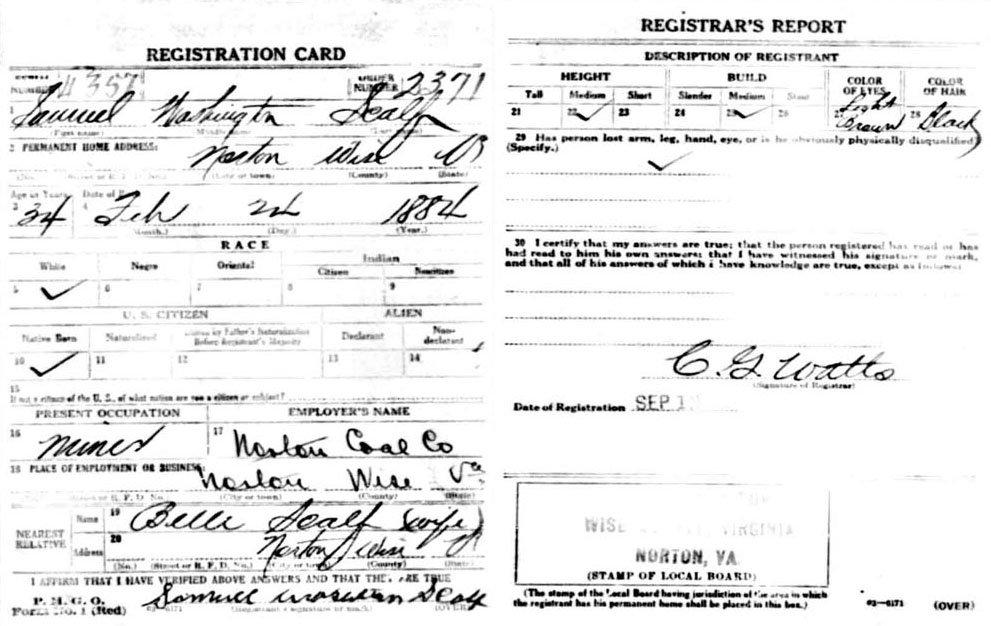 REGISTRATION CARD
SERIAL NUMBER 357 ORDER NUMBER 2371
1 Samuel Washington Scalf
(First name) (Middle name) (Last name)
2 PERMANENT HOME ADDRESS:
Norton Wise Va
(No.) (Street or R. F. D. No.) (City or town) (County) (State)
Age in Years Date of
3 34 4 Feb 24 1884
(Month.) (Day.) (Year.)
RACE
White Negro Oriental Indian
Citizen Noncitizen
5 ✓ 6 7 8 9
U. S. CITIZEN ALIEN
Native Born Naturalized Citizen by Father's Naturalization Before Registrant's Majority Declarant Non-declarant
10 ✓ 11 12 13 14
15
If not a citizen of the U. S., of what nation are you a citizen or subject?
PRESENT OCCUPATION EMPLOYER'S NAME
16 Miner 17 Norton Coal Co
18 PLACE OF EMPLOYMENT OR BUSINESS:
Norton Wise Va
(No.) (Street or R. F. D. No.) (City or town) (County) (State)
NEAREST RELATIVE Name 19 Belle Scalf (wife)
Address 20 Norton Wise Va
(No.) (Street or R. F. D. No.) (City or town) (County) (State)
I AFFIRM THAT I HAVE VERIFIED ABOVE ANSWERS AND THAT THEY ARE TRUE
P. M. G. O.
Form No. 1 (Red) Samuel Scalf
03—6171 (Registrant's signature or mark) (OVER)
REGISTRAR'S REPORT
DESCRIPTION OF REGISTRANT
HEIGHT BUILD COLOR OF EYES COLOR OF HAIR
Tall Medium Short Slender Medium Stout
21 22 ✓ 23 24 25 ✓ 26 27 Light Brown 28 Black
29 Has person lost arm, leg, hand, eye, or is he obviously physically disqualified?
(Specify.)
✓
30 I certify that my answers are true; that the person registered has read or has
had read to him his own answers; that I have witnessed his signature or mark,
and that all of his answers of which I have knowledge are true, except as follows:
C. G. Watts
(Signature of Registrar)
Date of Registration SEP 1
WISE VIRGINIA
NORTON, VA.
(STAMP OF LOCAL BOARD)
(The stamp of the Local Board having jurisdiction of the area in which
the registrant has his permanent home shall be placed in this box.)
03—6171 (OVER)